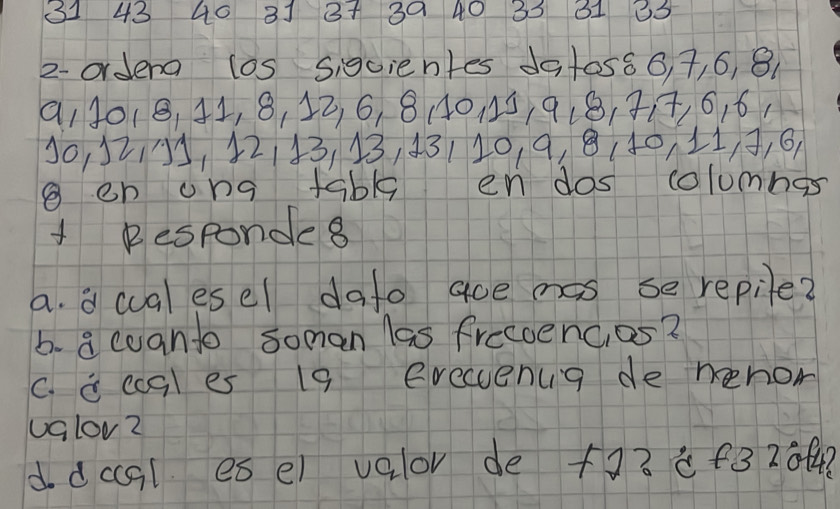 31 43 40 31 37 39 40 33 31 33
2- ordena los siguientes datos: 6,7,6,8,
9,10,8,11,8,12,6,8,10,11,9,8,7,7,6,6,
10,12,11,12,13,13,13,10,9,8,10,11,7,6,
8 en una tabla en dos columnas
y Responde:
a. ¿cual es el dato que mas se repite?
b. ¿cuanto soman las frecuencias?
c. ¿cual es la frecuencia de menor
valor?
d. ¿cual es el valor de f1? ¿f3? ¿f4?